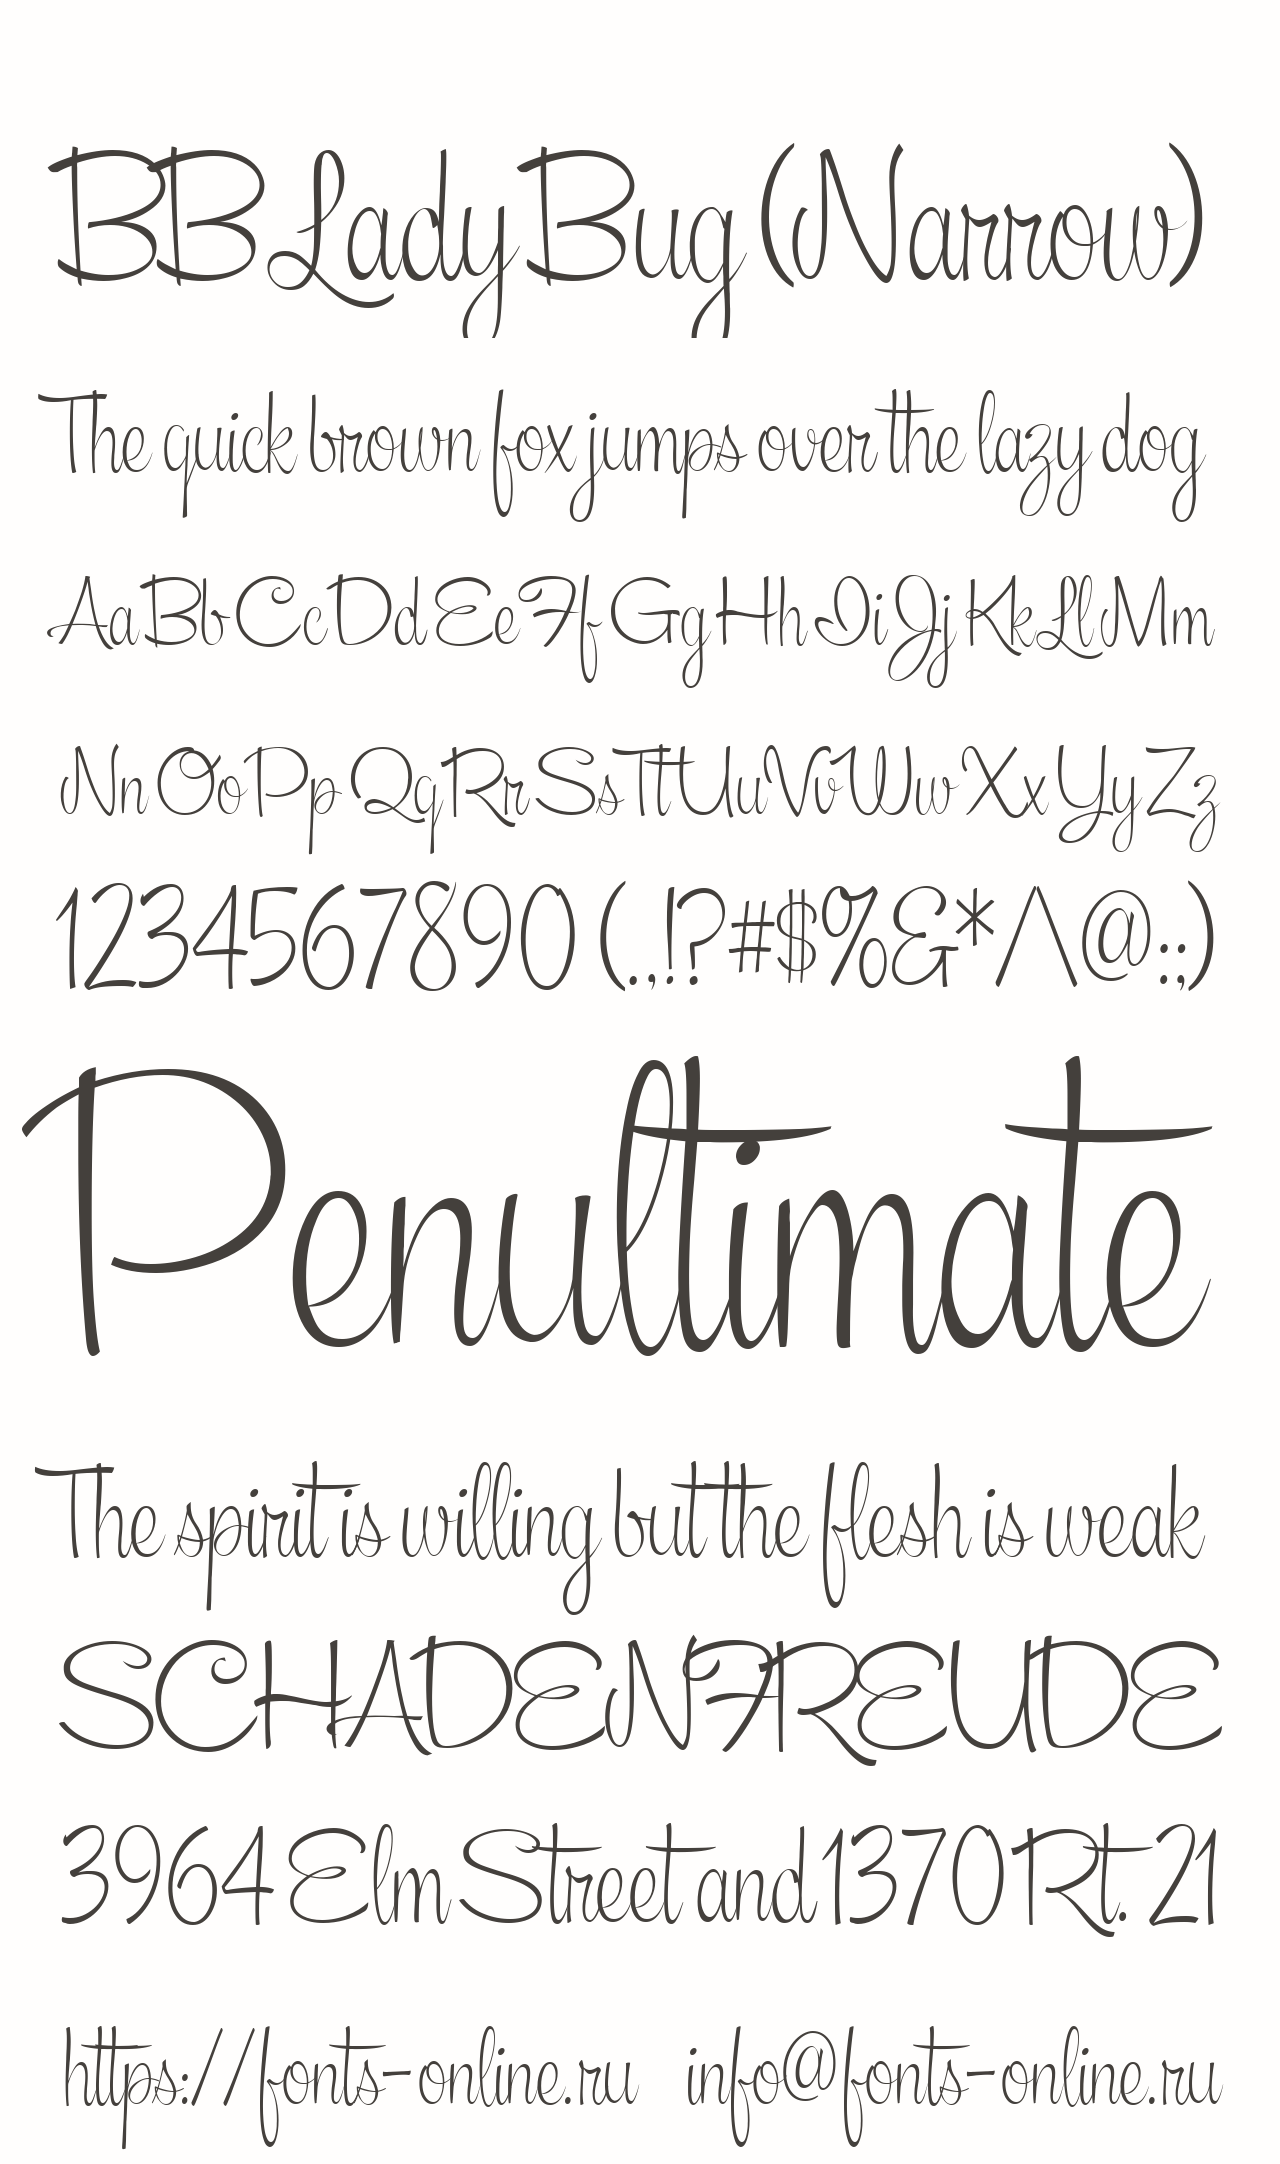 BB Lady Bug (Narrow)
The quick brown fox jumps over the lazy dog
Aa Bb Cc Dd Ee Ff Gg Hh Ii Jj Kk Ll Mm
Nn Oo Pp Qq Rr Ss Tt Uu Vv Ww Xx Yy Zz
1234567890 (.,!?#$%&*^@:;)
Penultimate
The spirit is willing but the flesh is weak
SCHADENFREUDE
3964 Elm Street and 1370 Rt. 21
https://fonts-online.ru info@fonts-online.ru